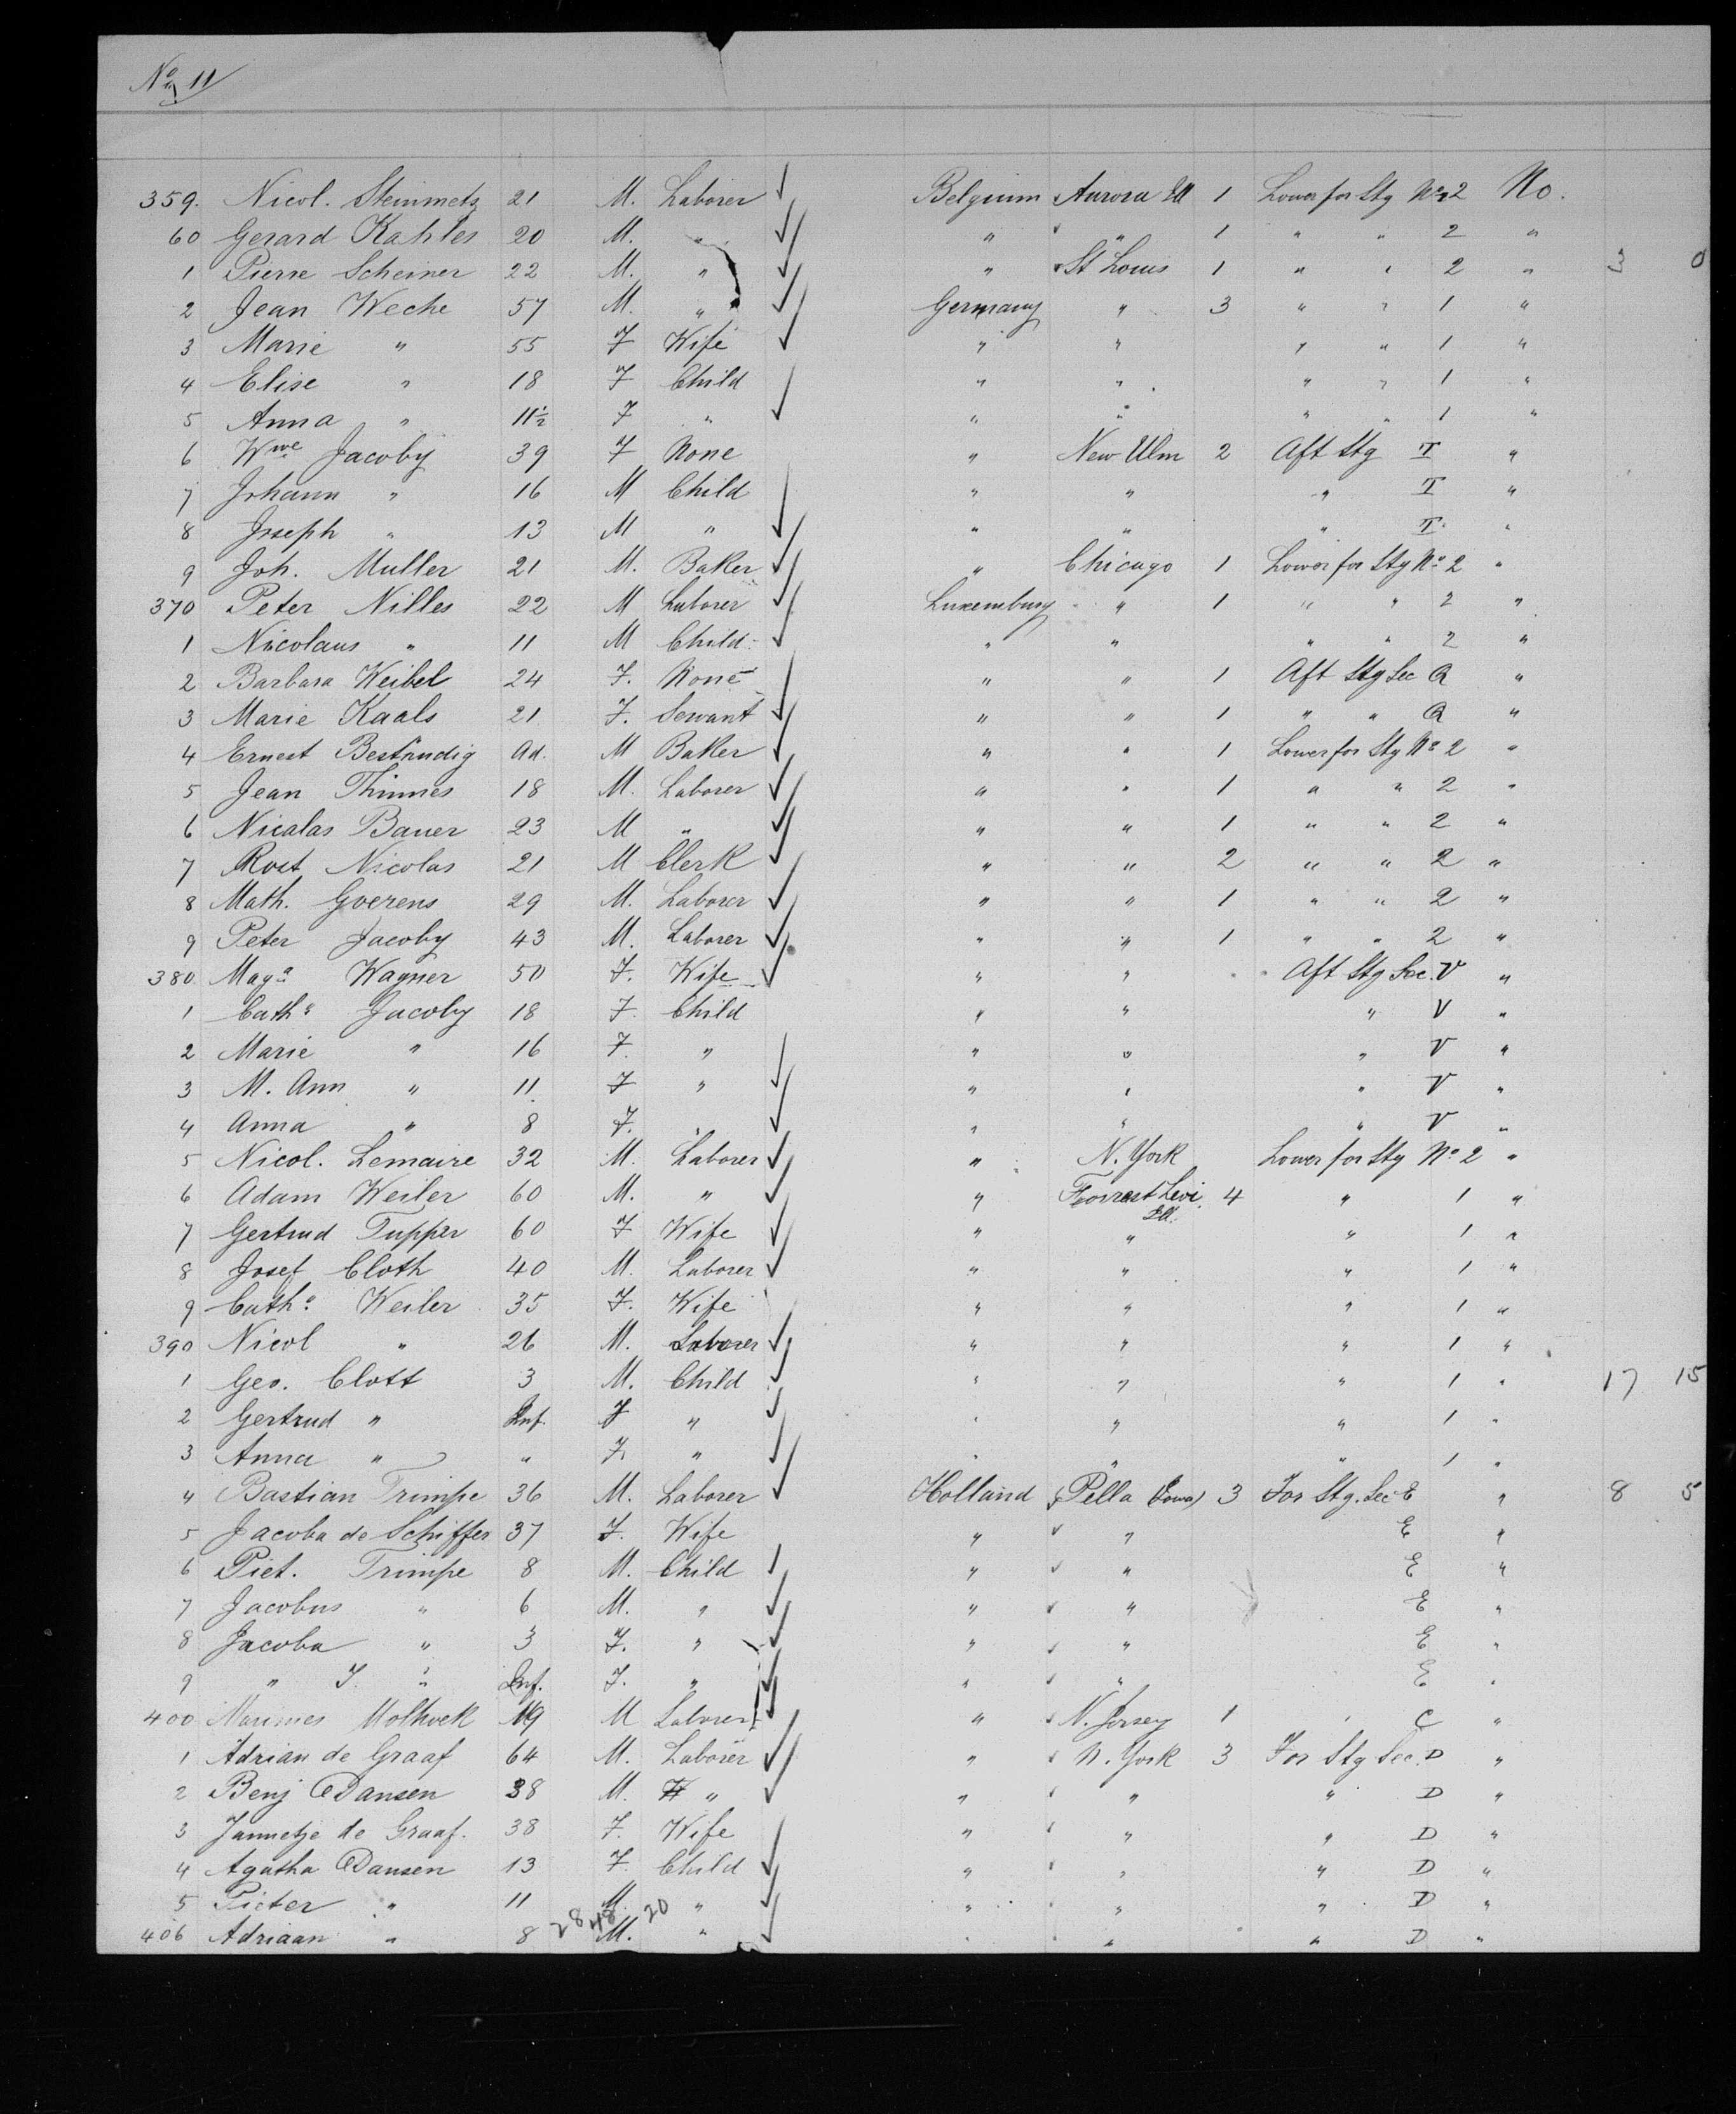 No 11
359. Nicol. Steinmetz 21 M. Laborer Belgium Aurora Ill 1 Lower for Stg No 2 No.
60 Gerard Kahles 20 M. " " " 1 " " 2 "
1 Pierre Scheiner 22 M. " " St Louis 1 " " 2 " 3 0
2 Jean Weche 57 M. " Germany " 3 " " 1 "
3 Marie " 55 F Wife " " " " 1 "
4 Elise " 18 F Child " " " " 1 "
5 Anna " 11½ F " " " " " 1 "
6 Wwe Jacoby 39 F None " New Ulm 2 Aft Stg T "
7 Johann " 16 M Child " " " T "
8 Joseph " 13 M " " " " T "
9 Joh. Muller 21 M. Baker " Chicago 1 Lower for Stg No 2 "
370 Peter Nilles 22 M Laborer Luxemburg " 1 " " 2 "
1 Nicolaus " 11 M Child " " " " 2 "
2 Barbara Weibel 24 F. None " " 1 Aft Stg Sec R "
3 Marie Kaals 21 F. Servant " " 1 " " R "
4 Ernest Beständig Ad. M Baker " " 1 Lower for Stg No 2 "
5 Jean Thinnes 18 M. Laborer " " 1 " " 2 "
6 Nicalas Bauer 23 M " " " 1 " " 2 "
7 Rost Nicolas 21 M Clerk " " 2 " " 2 "
8 Math. Goerens 29 M. Laborer " " 1 " " 2 "
9 Peter Jacoby 43 M. Laborer " " 1 " " 2 "
380. Maga Wagner 50 F. Wife " " Aft Stg Sec. V "
1 Catha Jacoby 18 F. Child " " " V "
2 Marie " 16 F. " " " " V "
3 M. Ann " 11. F " " " " V "
4 Anna " 8 F. " " " " V "
5 Nicol. Lemaire 32 M. Laborer " N. York Lower for Stg No 2 "
6 Adam Weiler 60 M. " " Forrest Levi. Ill. 4 " 1 "
7 Gertrud Tupper 60 F Wife " " " 1 "
8 Josef Cloth 40 M. Laborer " " " 1 "
9 Catha Weiler 35 F. Wife " " " 1 "
390 Nicol " 26 M. Laborer " " " 1 "
1 Geo. Clott 3 M. Child " " " 1 " 17 15
2 Gertrud " Inf. F " " " " 1 "
3 Anna " " F. " " " " 1 "
4 Bastian Trimpe 36 M. Laborer Holland Pella (Iowa) 3 For Stg. Sec E " 8 5
5 Jacoba de Schiffer 37 F. Wife " " E "
6 Piet. Trimpe 8 M. Child " " E "
7 Jacobus " 6 M. " " " E "
8 Jacoba " 3 F. " " " E "
9 " J. " Inf. F. " " " E "
400 Marines Molhoek 19 M Laborer " N. Jersey 1 " C "
1 Adrian de Graaf 64 M. Laborer " N. York 3 For Stg Sec. D "
2 Benj Dansen 38 M. " " " " D "
3 Jannetje de Graaf. 38 F. Wife " " " D "
4 Agatha Dansen 13 F. Child " " " D "
5 Pieter " 11 M. " " " " D "
406 Adriaan " 8 M. " " " " D "
28 48 20